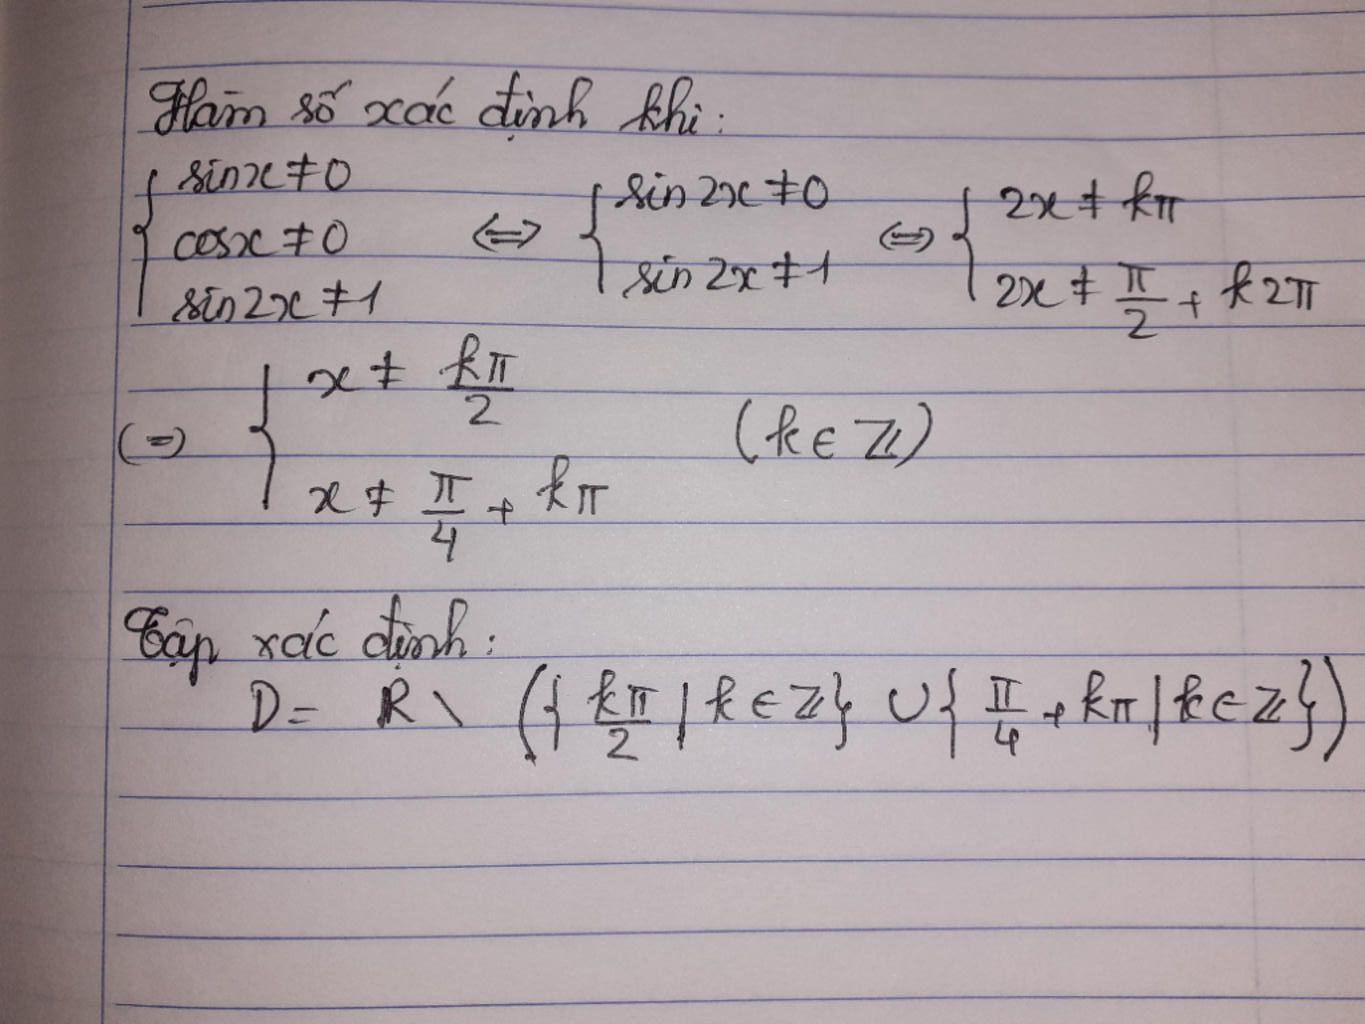 Hàm số xác định khi:
{ sinx ≠ 0
cosx ≠ 0
sin2x ≠ 1 ⇔ { sin 2x ≠ 0
sin 2x ≠ 1 ⇔ { 2x ≠ kπ
2x ≠ π/2 + k2π
⇔ { x ≠ kπ/2
x ≠ π/4 + kπ (k ∈ ℤ)
Tập xác định:
D = ℝ \ ({ kπ/2 | k ∈ ℤ} ∪ { π/4 + kπ | k ∈ ℤ})